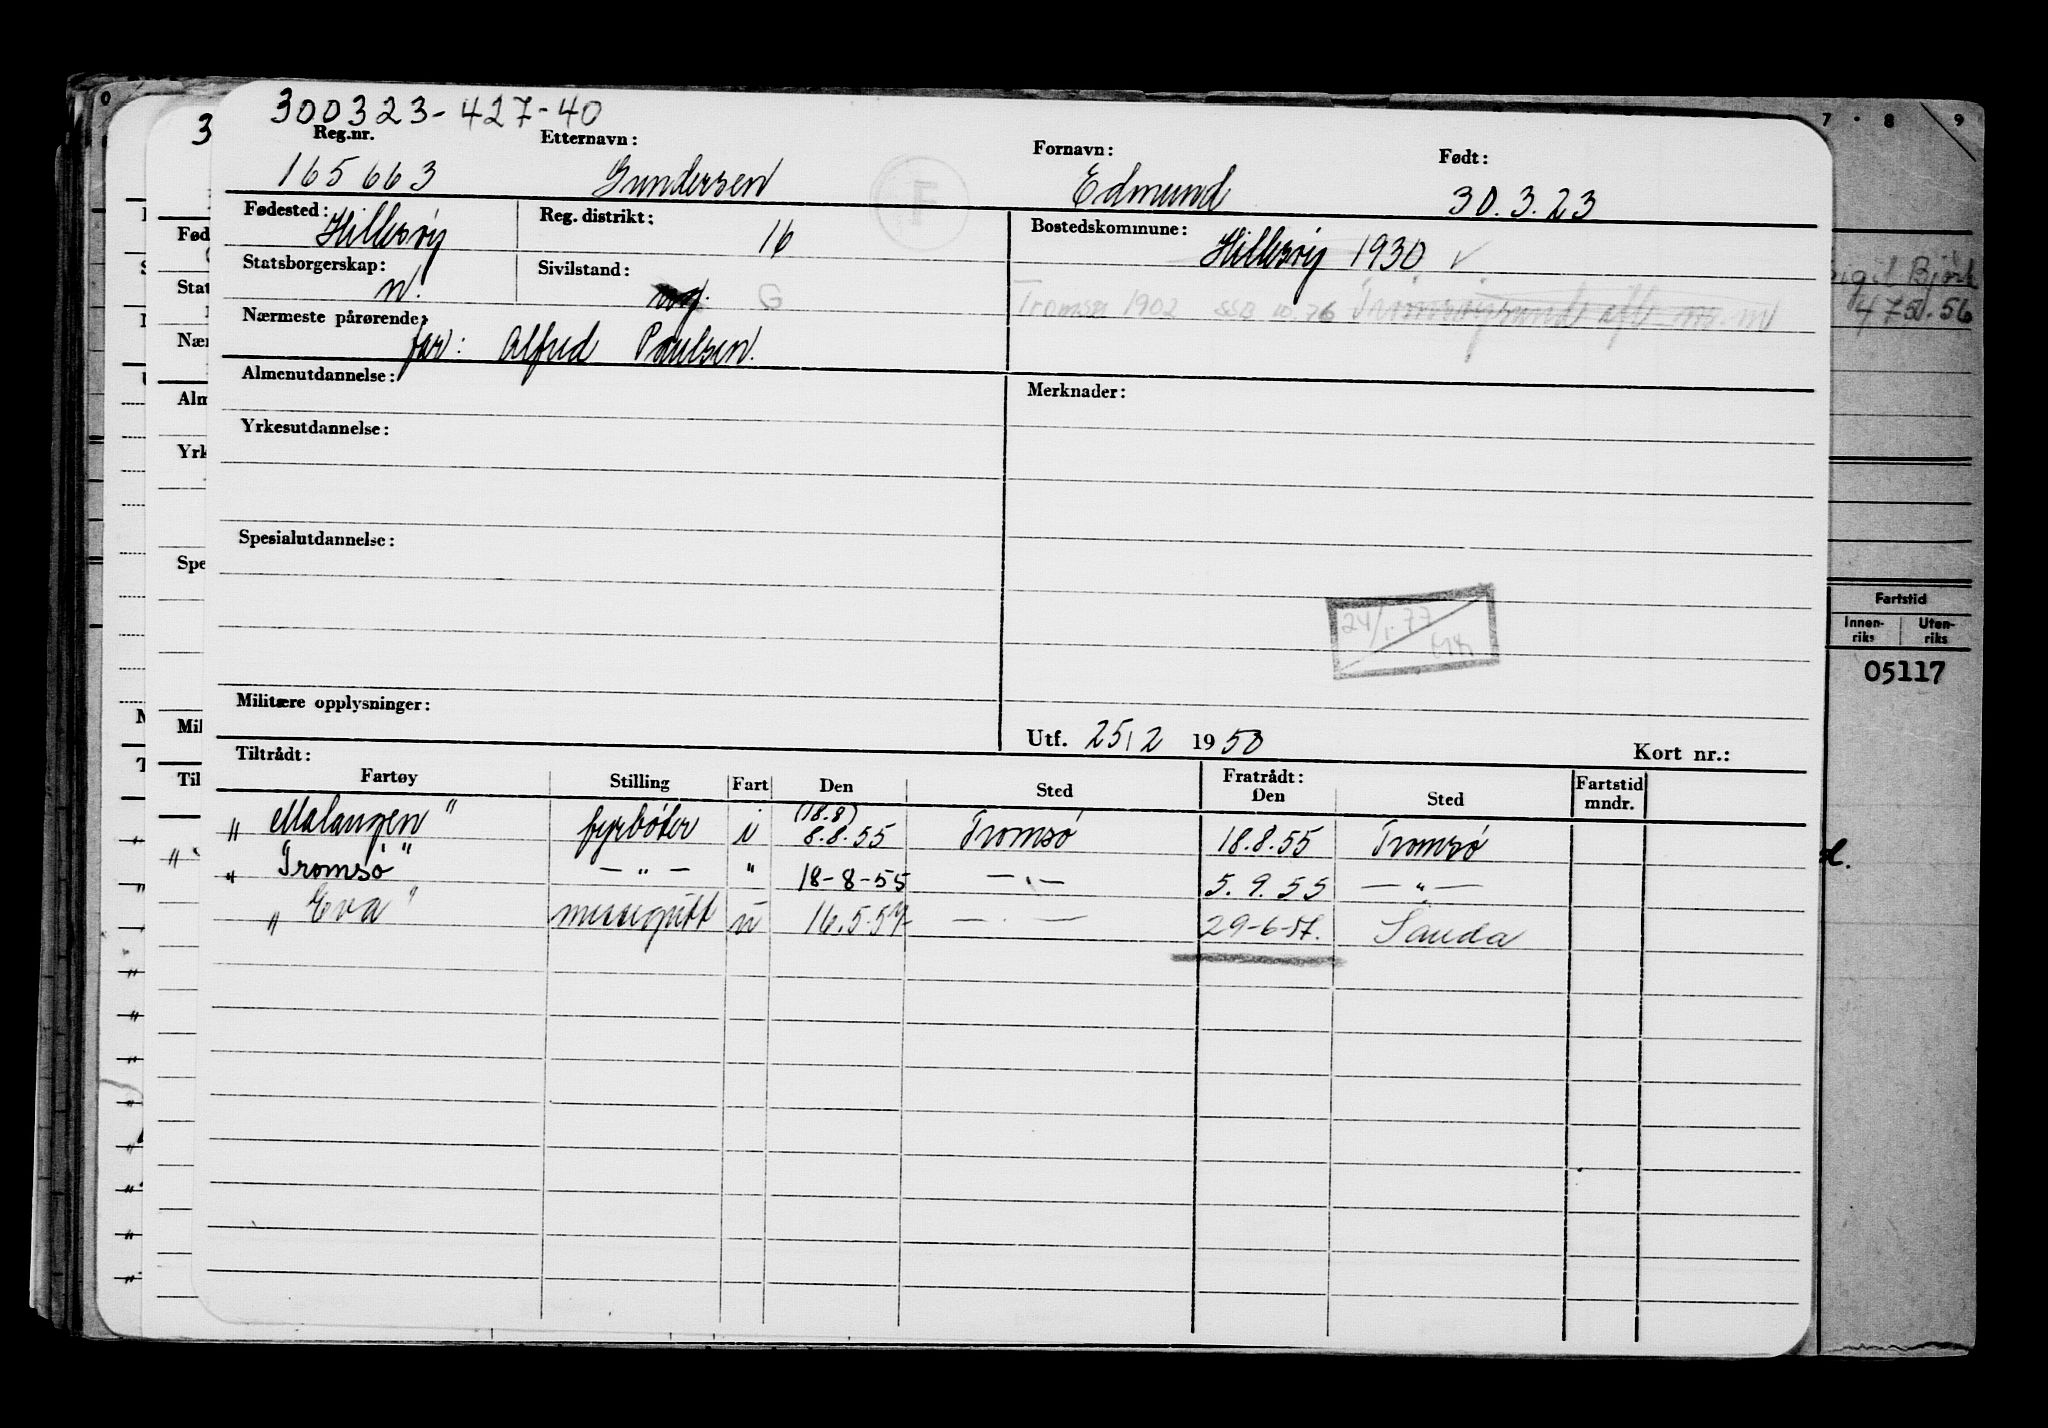 300323-427-40
Reg.nr. Etternavn: Fornavn: Født:
165663 Gundersen Edmund 30.3.23
F
Fødested: Hillesøy Reg. distrikt: 16 Bostedskommune: Hillesøy 1930 ✓
Statsborgerskap: n. Sivilstand: G
Tromsø 1902
Nærmeste pårørende: far: Alfred Paulsen.
Almenutdannelse: Merknader:
Yrkesutdannelse:
Spesialutdannelse:
24/1.77
Militære opplysninger:
Utf. 25/2 1950 Kort nr.:
Tiltrådt: Fratrådt:
Fartøy Stilling Fart Den Sted Den Sted Fartstid mndr.
(18.8)
„ Malangen" fyrbøter i 8.8.55 Tromsø 18.8.55 Tromsø
„ Tromsø" — „ — " 18-8-55 — „ — 5.9.55 — „ —
„ Eva" messegutt u 16.5.57 — „ — 29-6-57. Sauda
3
Fød
Stat
Nær
Alm
Yrk
Spe
Mil
Til
7 8 9
Bjørk
Fartstid
Innen-riks Uten-riks
05117